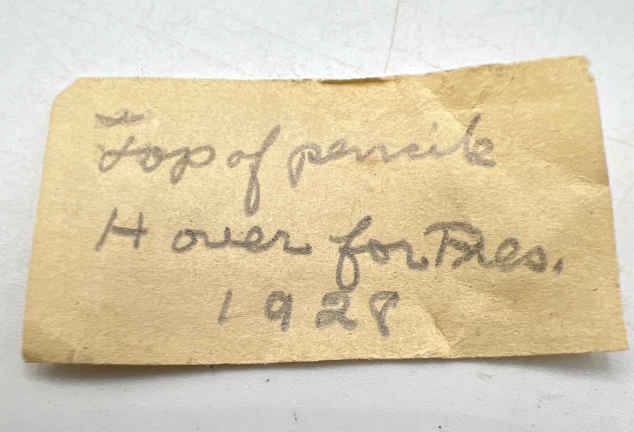 Top of pencil
Hover for Pres.
1928